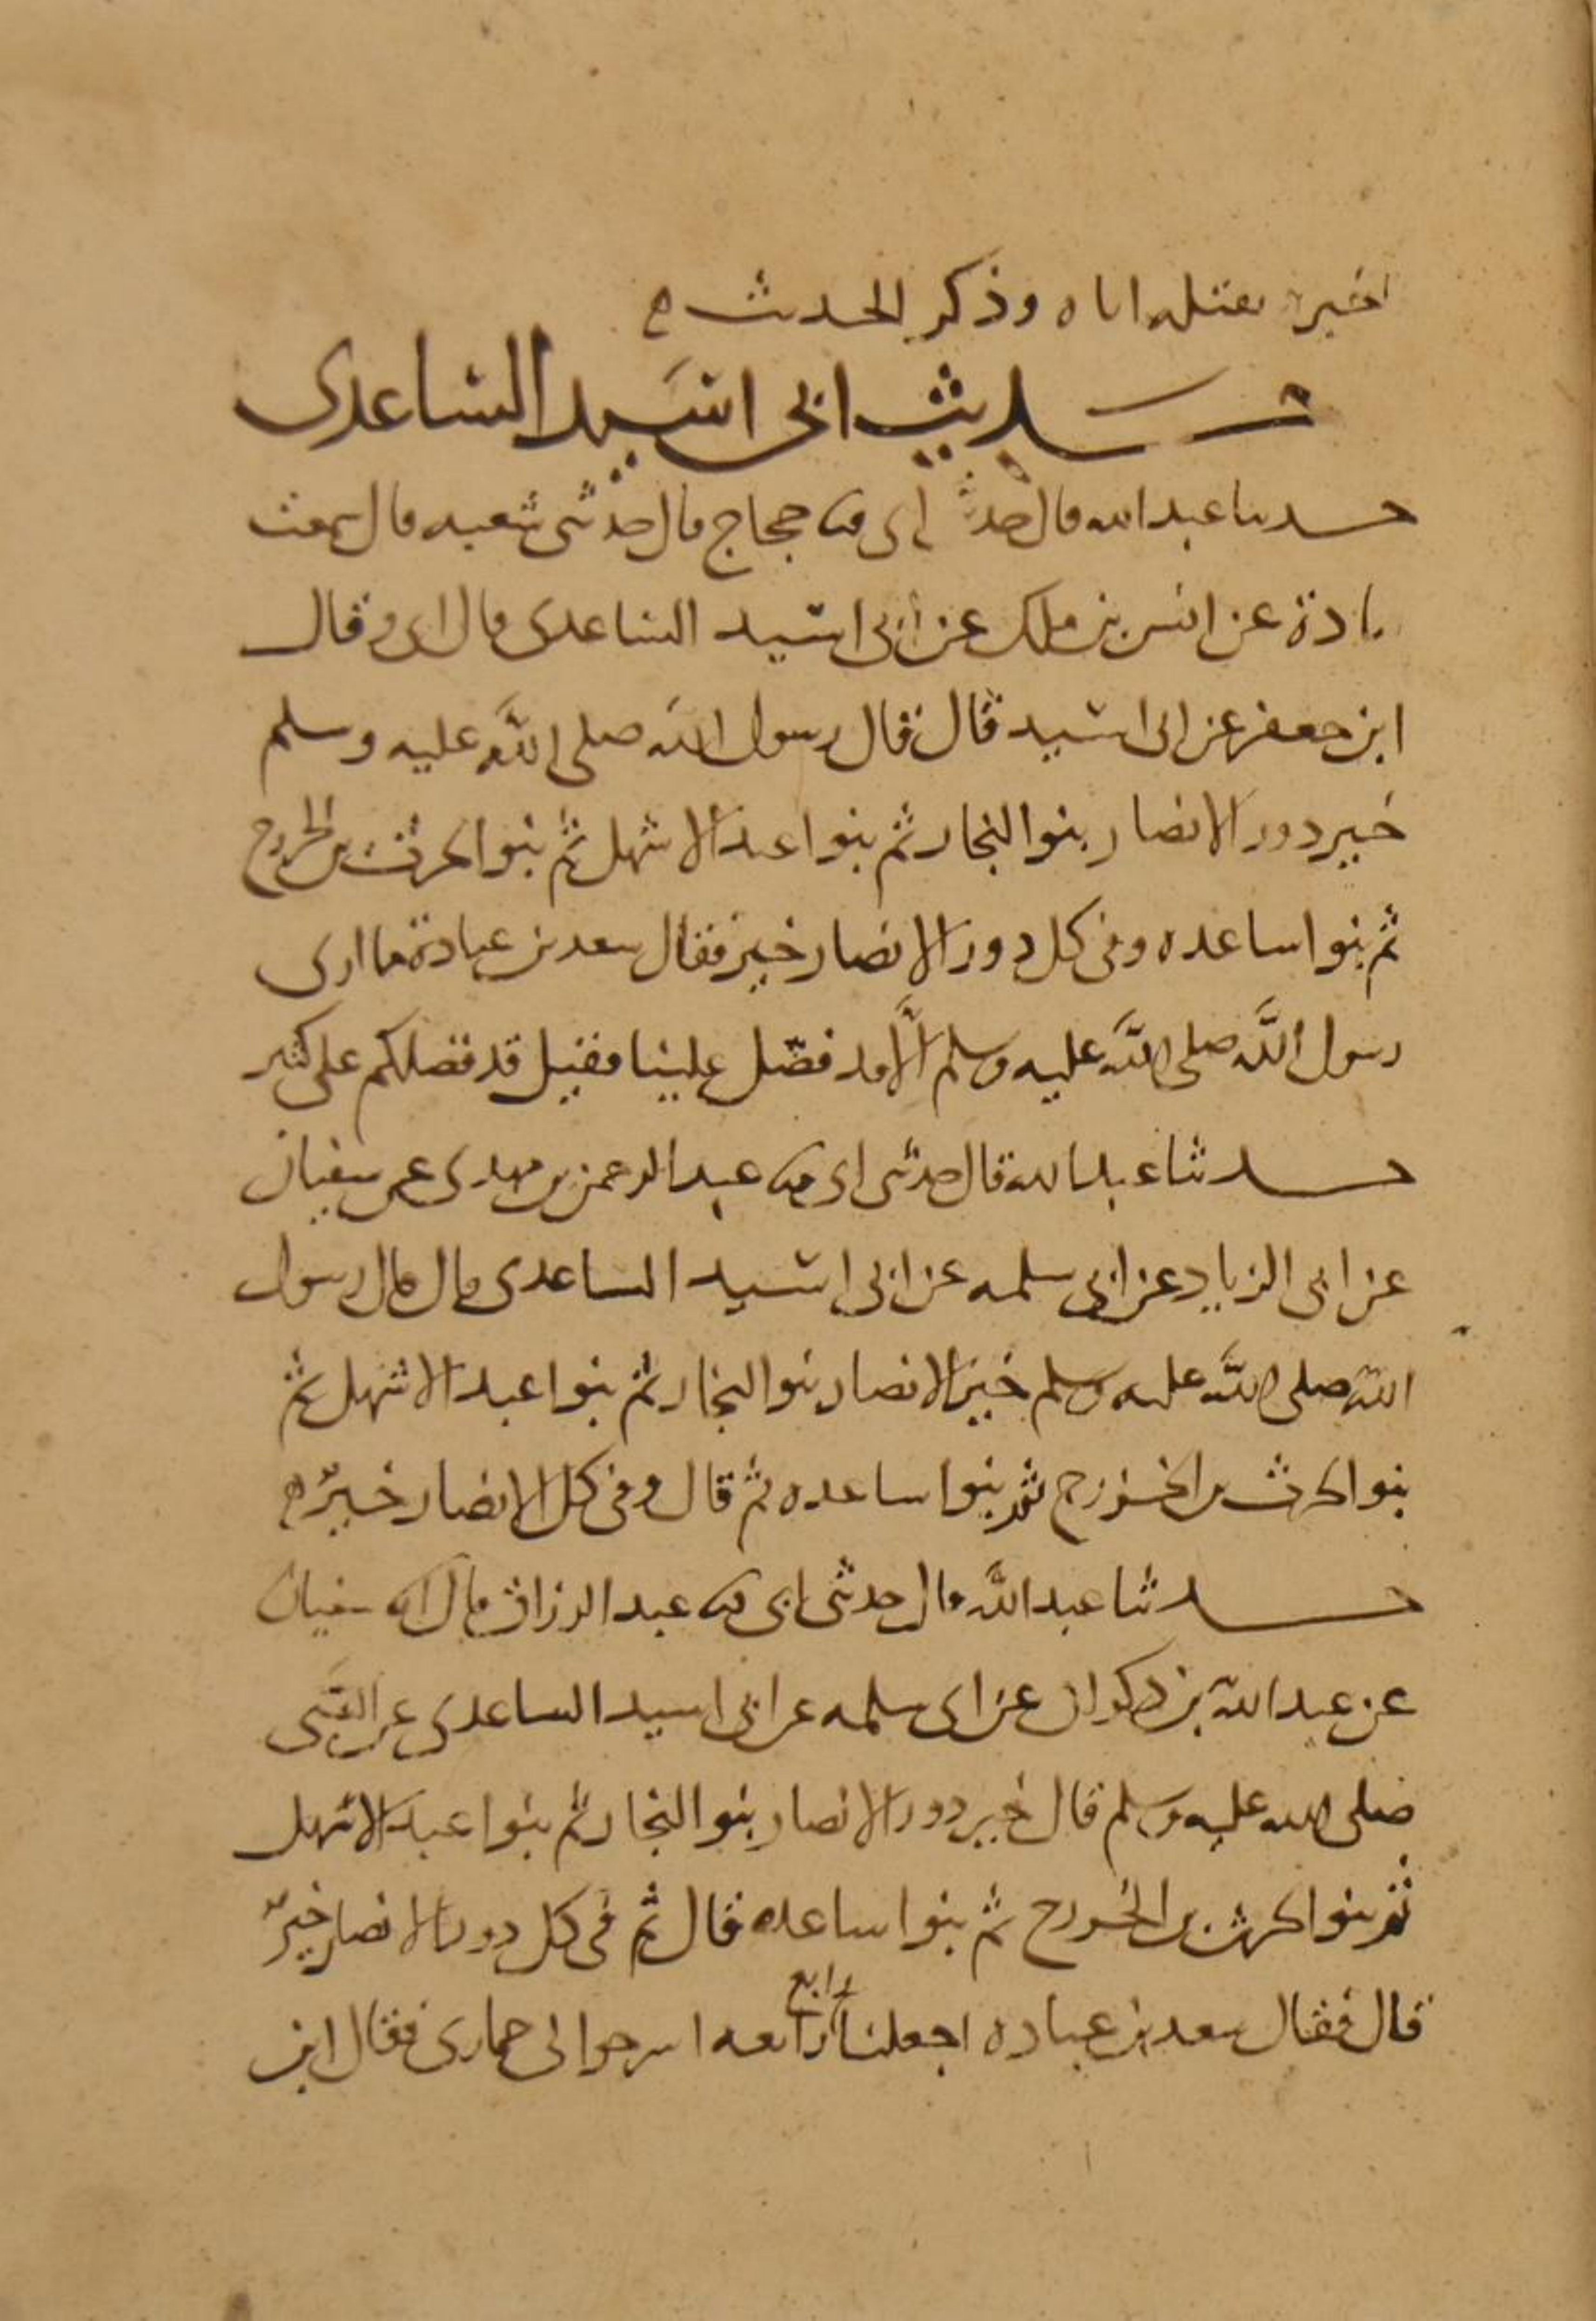 اخبره بقتله اياه وذكر الحديث ه
حديث ابى اسيد الساعدى
حدثنا عبد الله قال حدثنى ابى ثنا حجاج قال حدثنى شعبه قال سمعت
قتادة عن انس بن ملك عن ابى اسيد الساعدى قال ابى وقال
ابن جعفر عن ابى اسيد قال قال رسول الله صلى الله عليه وسلم
خير دور الانصار بنوا النجار ثم بنوا عبد الاشهل ثم بنوا الحرث بن الخزرج
ثم بنوا ساعده وفى كل دور الانصار خير فقال سعد بن عبادة ما ارى
رسول الله صلى الله عليه وسلم الا قد فضّل علينا فقيل قد فضلكم على كثير
حدثنا عبد الله قال حدثنى ابى ثنا عبد الرحمن بن مهدى عن سفيان
عن ابى الزياد عن ابى سلمه عن ابى اسيد الساعدى قال قال رسول
الله صلى الله عليه وسلم خير الانصار بنوا النجار ثم بنوا عبد الاشهل ثم
بنوا الحرث بن الخزرج ثم بنوا ساعده ثم قال وفى كل الانصار خيرٌ ه
حدثنا عبد الله قال حدثنى ابى ثنا عبد الرزاق قال انا سفيان
عن عبد الله بن ذكوان عن ابى سلمه عن ابى اسيد الساعدى عن النبى
صلى الله عليه وسلم قال خير دور الانصار بنوا النجار ثم بنوا عبد الاشهل
ثم بنوا الحرث بن الخزرج ثم بنوا ساعده قال ثم فى كل دور الانصار خيرٌ
رابع
قال فقال سعد بن عباده اجعلنا رابعه اسرجوا لى حمارى فقال ابن